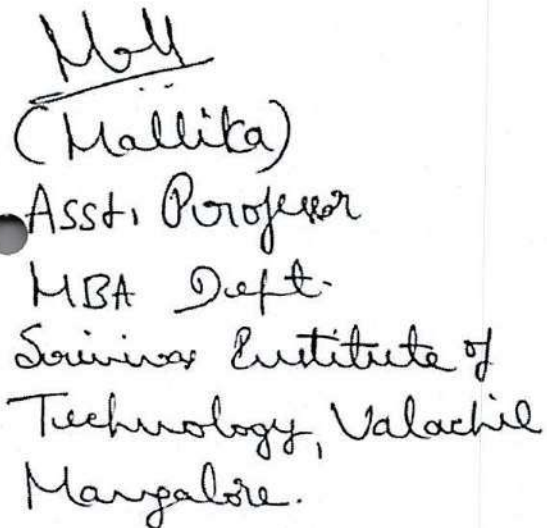 (Mallika)
Asst. Professor
MBA Dept.
Srinivas Institute of
Technology, Valachil
Mangalore.